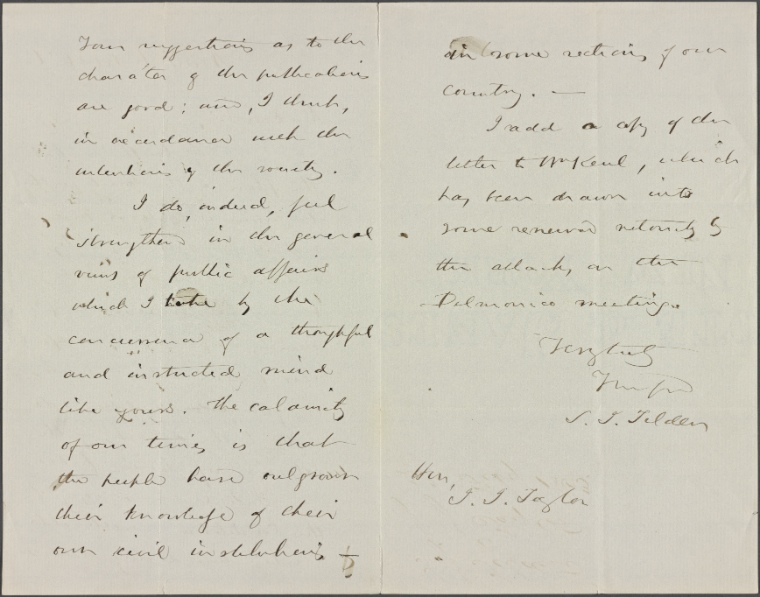 Your suggestions as to the
character of the publications
are good; and, I think,
in accordance with the
intentions of the society.
I do, indeed, feel
strengthened in the general
views of public affairs
which I take by the
concurrence of a thoughtful
and instructed mind
like yours. The calamity
of our times is that
the people have outgrown
their knowledge of their
own civil institutions
in some sections of our
country. —
I add a copy of the
letter to Wm Kent, which
has been drawn into
some renewed notoriety by
the attacks on the
Delmonico meeting.
Very truly
Your frd
S. J. Tilden
Hon.
J. J. Taylor